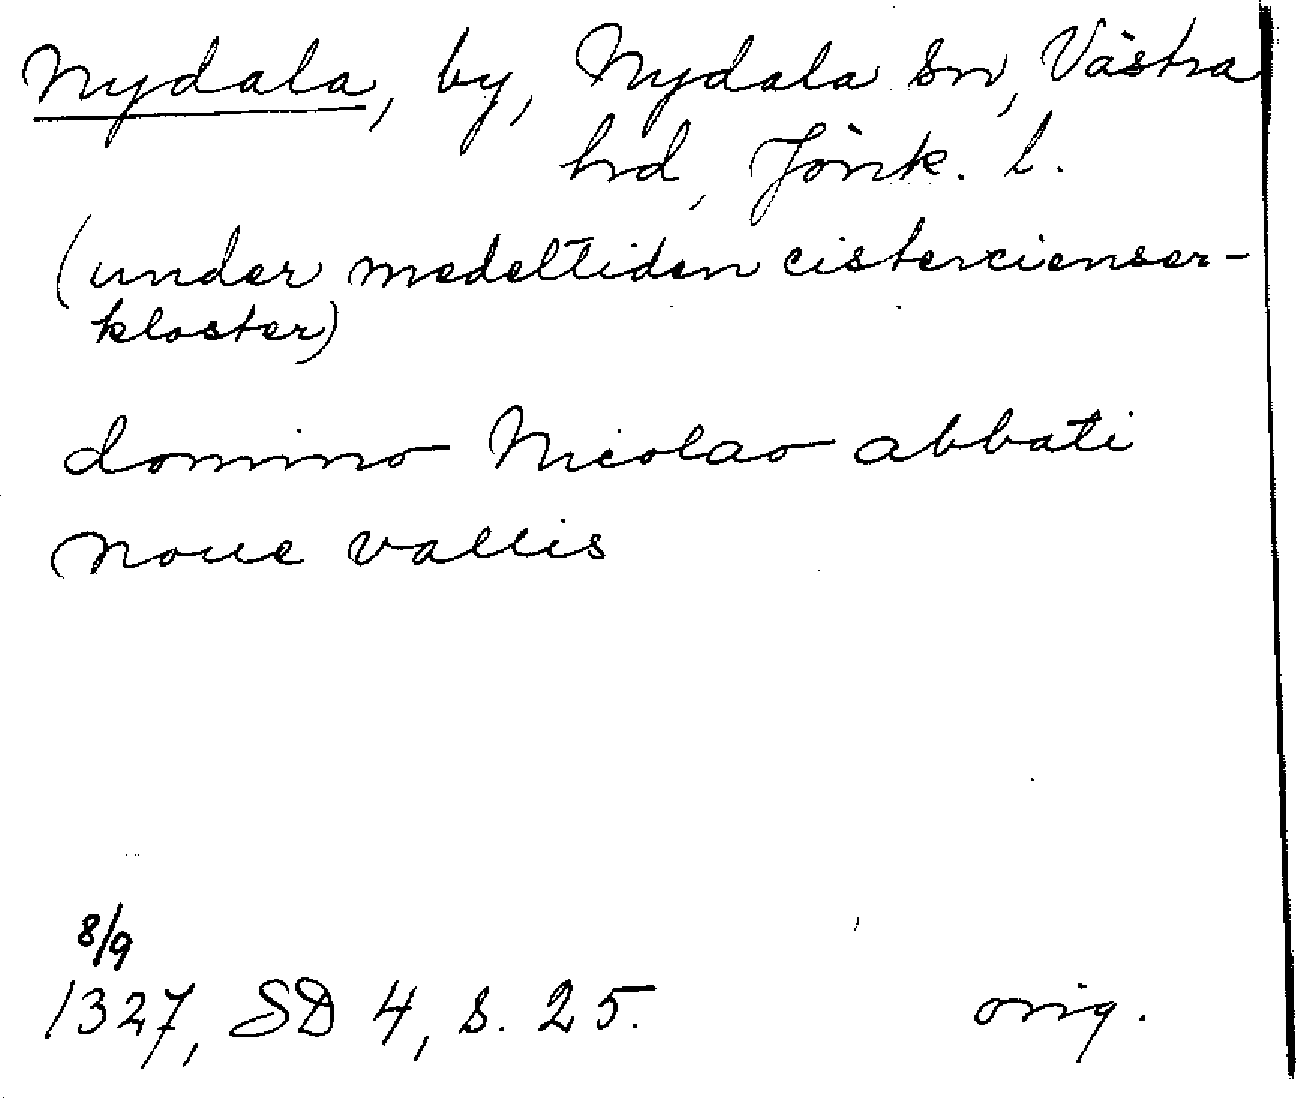 Nydala, by, Nydala sn, Västra
hd, Jönk. l.
(under medeltiden cistercienser-
kloster)
domino Nicolao abbati
noue vallis
8/9
1327, SD 4, s. 25.
orig.